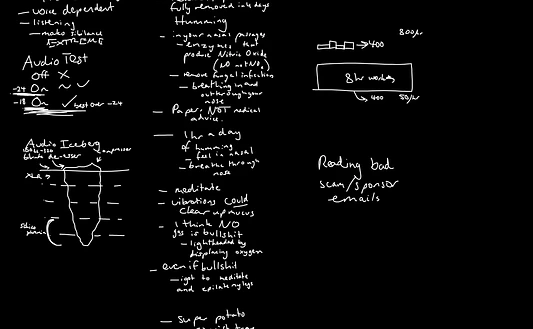 — voice dependent
— listening
— make
EXTREME
Audio Test
Off X
-24 On ~ ✓
-18 On ✓ best over -24
Audio Iceberg
compressor
XLR
fully removed in 4 days
Humming
- in your nasal passages
- enzymes that
produce Nitric Oxide
(NO not NO₂)
- remove fungal infection
- breathing in and
out through your
nose
- Paper, NOT medical
advice.
— 1 hr a day
of humming
- feel in nasal
- breathe through
nose
- meditate
- vibrations could
clear up mucus
- I think NO
gas is bullshit
- lightheaded by
displacing oxygen
- even if bullshit
- i get to meditate
and epilate my legs
— super potato
→ 400
800/hr
8hr working
→ 400
50/hr
Reading bad
scam/sponsor
emails